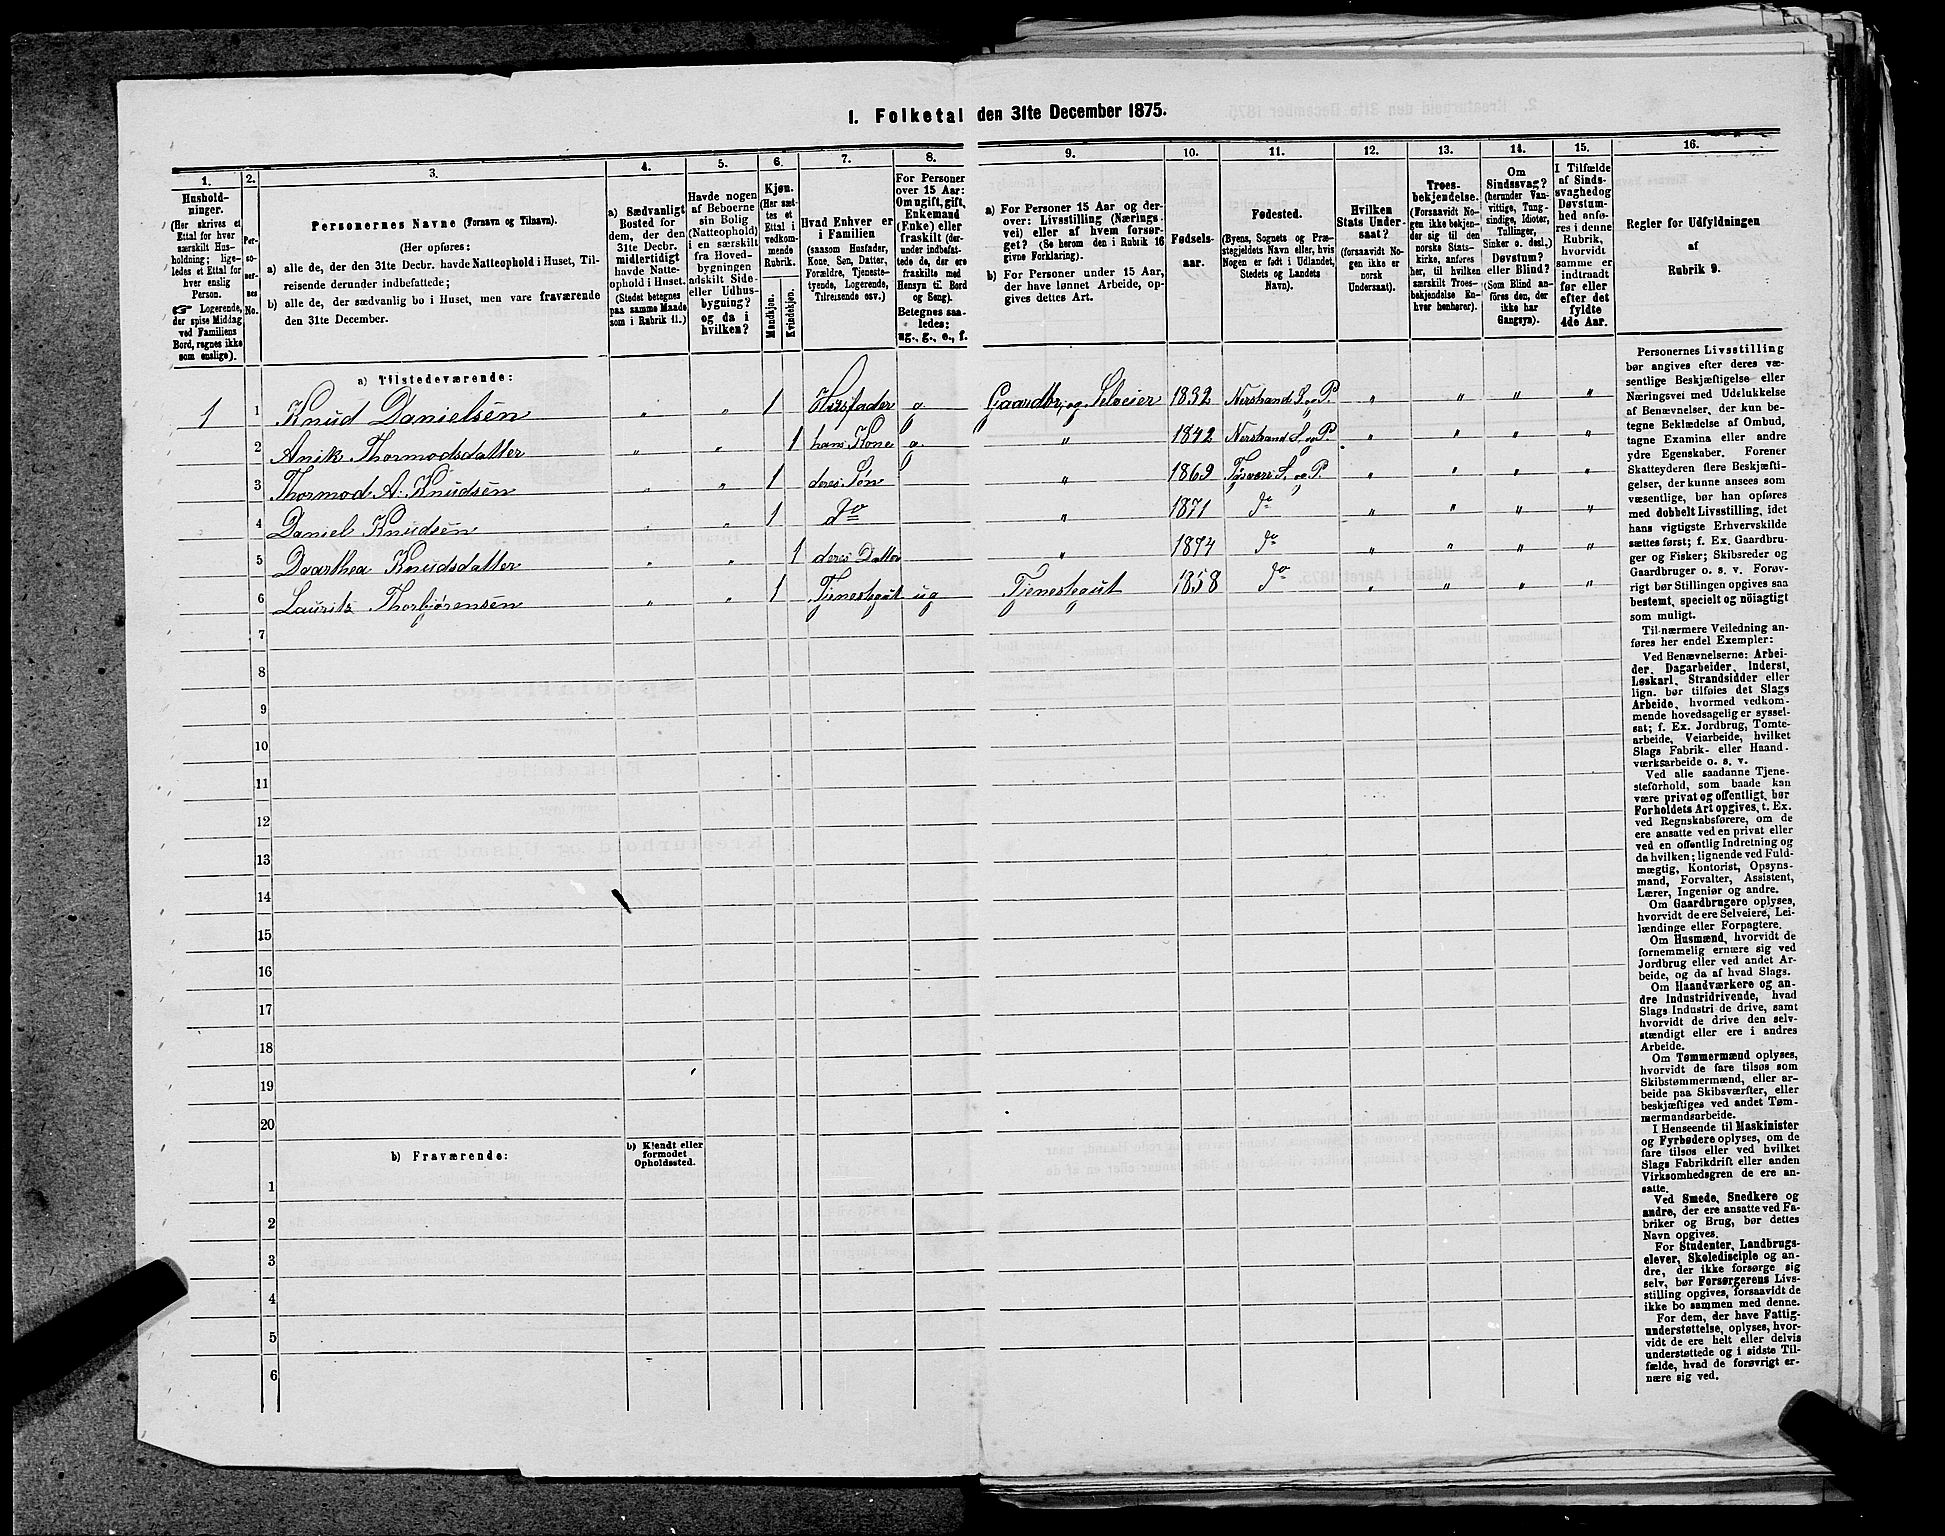 I. Folketal den 31te December 1875.
1.
Hushold-
ninger.
(Her skrives et
Ettal for hver
særskilt Hus-
holdning; lige-
ledes et Ettal for
hver enslig
Person.
☞ Logerende,
der spise Middag
ved Familiens
Bord, regnes ikke
som enslige).
2.
Per-
so-
ner-
nes
No.
3.
Personernes Navne (Fornavn og Tilnavn).
(Her opføres:
a) alle de, der den 31te Decbr. havde Natteophold i Huset, Til-
reisende derunder indbefattede;
b) alle de, der sædvanlig bo i Huset, men vare fraværende
den 31te December.
4.
a) Sædvanligt
Bosted for
dem, der den
31te Decbr.
midlertidigt
havde Natte-
ophold i Huset.
(Stedet betegnes
paa samme Maade
som i Rubrik 11.)
5.
Havde nogen
af Beboerne
sin Bolig
(Natteophold)
i en særskilt
fra Hoved-
bygningen
adskilt Side-
eller Udhus-
bygning?
og da i
hvilken?
6.
Kjøn.
(Her sæt-
tes et
Ettal i
vedkom-
mende
Rubrik.
Mandkjøn.
Kvindekjøn.
7.
Hvad Enhver er
i Familien
(saasom Husfader,
Kone, Søn, Datter,
Forældre, Tjeneste-
tyende, Logerende,
Tilreisende osv.)
8.
For Personer
over 15 Aar:
Om ugift, gift,
Enkemand
(Enke) eller
fraskilt (der-
under indbefat-
tede de, der ere
fraskilte med
Hensyn til Bord
og Seng).
Betegnes saa-
ledes:
ug., g., e., f.
9.
a) For Personer 15 Aar og der-
over: Livsstilling (Nærings-
vei) eller af hvem forsør-
get? (Se herom den i Rubrik 16
givne Forklaring).
b) For Personer under 15 Aar,
der have lønnet Arbeide, op-
gives dettes Art.
10.
Fødsels-
aar.
11.
Fødested.
(Byens, Sognets og Præ-
stegjeldets Navn eller, hvis
Nogen er født i Udlandet,
Stedets og Landets
Navn).
12.
Hvilken
Stats Under-
saat?
(forsaavidt No-
gen ikke er
norsk
Undersaat).
13.
Troes-
bekjendelse.
(Forsaavidt No-
gen ikke bekjen-
der sig til den
norske Stats-
kirke, anføres
her, til hvilken
særskilt Troes-
bekjendelse En-
hver henhører).
14.
Om
Sindssvag?
(herunder Van-
vittige, Tung-
sindige, Idioter,
Tullinger,
Sinker o. desl.)
Døvstum?
eller Blind?
(Som Blind an-
føres den, der
ikke har
Gangsyn).
15.
I Tilfælde
af Sinds-
svaghed og
Døvstum-
hed anfø-
res i denne
Rubrik,
hvorvidt
samme er
indtraadt
før eller
efter det
fyldte
4de Aar.
16.
Regler for Udfyldningen
af
Rubrik 9.
a) Tilstedeværende:
1 1 Knud Danielsen " " 1 Husfader g. Gaardbr. og Selveier 1832 Nerstrand S. og P. " " " "
2 Anik Thormodsdatter " " 1 hans Kone g. " 1842 Nerstrand S. og P. " " " "
3 Thormod A. Knudsen " " 1 deres Søn " 1869 Tysvær S. og P. " " " "
4 Daniel Knudsen " " 1 do " 1871 do " " " "
5 Daarthea Knudsdatter " " 1 deres Datter " 1874 do " " " "
6 Laurits Thorbjørensen " " 1 Tjenestegut ug Tjenestegut 1858 do " " " "
7
8
9
10
11
12
13
14
15
16
17
18
19
20
b) Fraværende:
b) Kjendt eller
formodet
Opholdssted.
1
2
3
4
5
6
Personernes Livsstilling
bør angives efter deres væ-
sentlige Beskjæftigelse eller
Næringsvei med Udelukkelse
af Benævnelser, der kun be-
tegne Beklædelse af Ombud,
tagne Examina eller andre
ydre Egenskaber. Forener
Skatteyderen flere Beskjæfti-
gelser, der kunne ansees som
væsentlige, bør han opføres
med dobbelt Livsstilling, idet
hans vigtigste Erhvervskilde
sættes først; f. Ex. Gaardbru-
ger og Fisker; Skibsreder og
Gaardbruger o. s. v. Forøv-
rigt bør Stillingen opgives saa
bestemt, specielt og nøiagtigt
som muligt.
Til nærmere Veiledning an-
føres her endel Exempler:
Ved Benævnelserne: Arbei-
der, Dagarbeider, Inderst,
Løskarl, Strandsidder eller
lign. bør tilføies det Slags
Arbeide, hvormed vedkom-
mende hovedsagelig er syssel-
sat; f. Ex. Jordbrug, Tomte-
arbeide, Veiarbeide, hvilket
Slags Fabrik- eller Haand-
værksarbeide o. s. v.
Ved alle saadanne Tjene-
steforhold, som baade kan
være privat og offentligt, bør
Forholdets Art opgives, t. Ex.
ved Regnskabsførere, om de
ere ansatte ved en privat eller
ved en offentlig Indretning og
da hvilken; lignende ved Fuld-
mægtig, Kontorist, Opsyns-
mand, Forvalter, Assistent,
Lærer, Ingeniør og andre.
Om Gaardbrugere oplyses,
hvorvidt de ere Selveiere, Lei-
lændinge eller Forpagtere.
Om Husmænd, hvorvidt de
fornemmelig ernære sig ved
Jordbrug eller ved andet Ar-
beide, og da af hvad Slags.
Om Haandværkere og an-
dre Industridrivende, hvad
Slags Industri de drive, samt
hvorvidt de drive den selv-
stændigt eller ere i andres
Arbeide.
Om Tømmermænd oplyses,
hvorvidt de fare tilsøs som
Skibstømmermænd, eller ar-
beide paa Skibsværfter, eller
beskjæftiges ved andet Tøm-
mermandsarbeide.
I Henseende til Maskinister
og Fyrbødere oplyses, om de
fare tilsøs eller ved hvilket
Slags Fabrikdrift eller anden
Virksomhedsgren de ere an-
satte.
Ved Smede, Snedkere og
andre, der ere ansatte ved Fa-
briker og Brug, bør dettes
Navn opgives.
For Studenter, Landbrugs-
elever, Skoledisciple og an-
dre, der ikke forsørge sig
selv, bør Forsørgerens Livs-
stilling opgives, forsaavidt de
ikke bo sammen med denne.
For dem, der have Fattig-
understøttelse, oplyses, hvor-
vidt de ere helt eller delvis
understøttede og i sidste Til-
fælde, hvad de forøvrigt er-
nære sig ved.